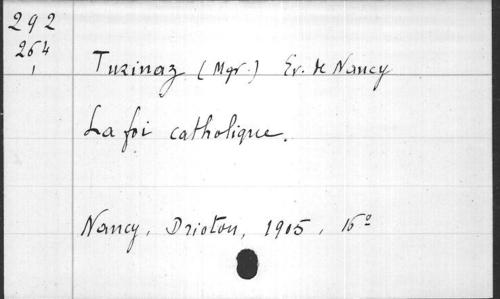 292
264
Turinaz (Mgr.) Ev. de Nancy
La foi catholique.
Nancy, Drioton, 1905, 16º